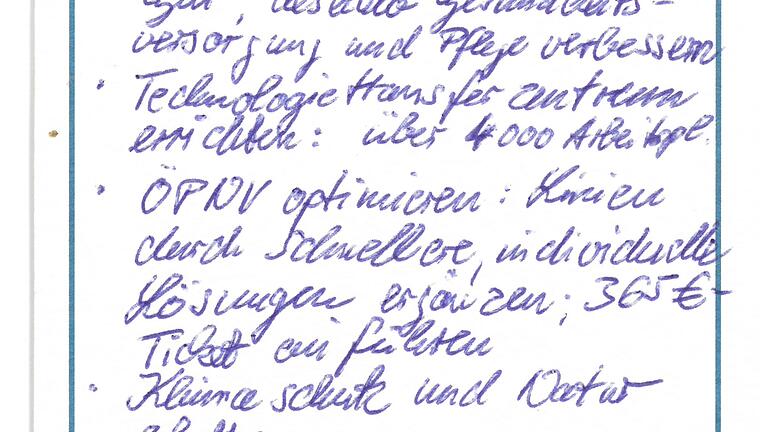 gesundheits-
versorgung und Pflege verbessern
• Technologietransferzentrum
errichten: über 4000 Arbeitspl.
• ÖPNV optimieren: Linien
durch schnellere, individuelle
Lösungen ergänzen; 365 €-
Ticket einführen
• Klimaschutz und Natur